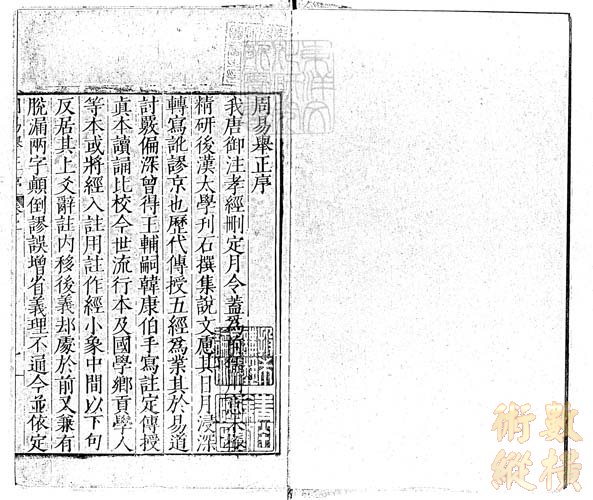 周易舉正序
我唐御注孝經刪定月令蓋爲前儒用意未
精研後漢太學刋石撰集說文慮其日月浸深
轉寫訛謬京也歷代傳授五經爲業其於易道
討覈偏深曾得王輔嗣韓康伯手寫註定傳授
眞本讀誦比校今世流行本及國學鄉貢學人
等本或將經入註用註作經小象中間以下句
反居其上爻辭註內移後義却處於前又兼有
脫漏兩字顛倒謬誤增省義理不通今並依定
周易舉正序
數橫
術縱